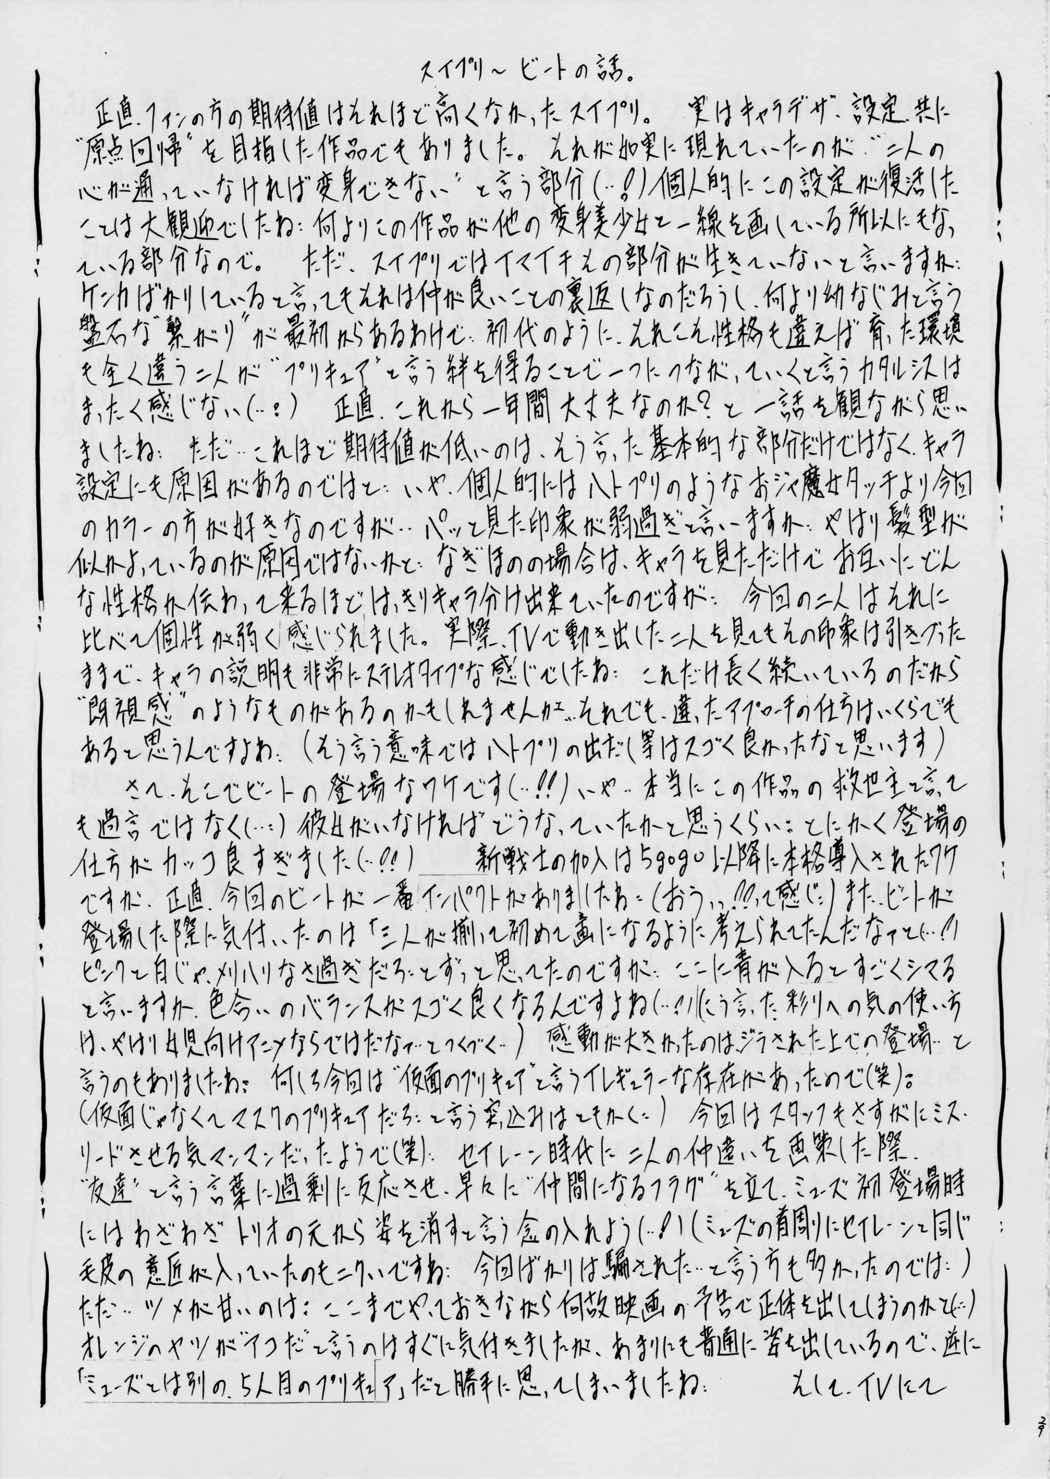 スイプリ～ ビートの話。
正直、ファンの方の期待値はそれほど高くなかったスイプリ。 実はキャラデザ、設定、共に
"原点回帰"を目指した作品でもありました。 それが如実に現れていたのが、"二人の
心が通っていなければ変身できない"と言う部分(…!)個人的にこの設定が復活した
ことは大観迎でしたね…何よりこの作品が他の変身美少女と一線を画している所以にもなっ
ている部分なので。 ただ、スイプリではイマイチその部分が生きていないと言いますか…
ケンカばかりしていると言ってもそれは仲が良いことの裏返しなのだろうし、何より幼なじみと言う
盤石な"繋がり"が最初からあるわけで…初代のように、それこそ性格も違えば育った環境
も全く違う二人が"プリキュア"と言う絆を得ることで一つにつながっていくと言うカタルシスは
まったく感じない(…;) 正直、これから一年間大丈夫なのか?と一話を観ながら思い
ましたね… ただ…これほど期待値が低いのは、そう言った基本的な部分だけではなく、キャラ
設定にも原因があるのではと… いや、個人的にはハトプリのようなおジャ魔女タッチより今回
のカラーの方が好きなのですが… パッと見た印象が弱過ぎと言いますか… やはり髪型が
似かよっているのが原因ではないかと… なぎほのの場合は、キャラを見ただけでお互いにどん
な性格か伝わって来るほどはっきりキャラ分け出来ていたのですが… 今回の二人はそれに
比べて個性が弱く感じられました。実際、TVで動き出した二人を見てもその印象は引きづった
ままで、キャラの説明も非常にステレオタイプな感じでしたね… これだけ長く続いているのだから
"既視感"のようなものがあるのかもしれませんが…それでも、違ったアプローチの仕方はいくらでも
あると思うんですよね。(そう言う意味ではハトプリの出だし等はスゴく良かったなと思います)
さて、そこでビートの登場なワケです(…!!)いや…本当にこの作品の救世主と言って
も過言ではなく(…;)彼女がいなければどうなっていたかと思うくらい… とにかく登場の
仕方がカッコ良すぎました(…!!) 新戦士の加入は5gogo以降に本格導入されたワケ
ですが、正直、今回のビートが一番インパクトがありましたね…(おうっっ!?って感じ…)また、ビートが
登場した際に気付いたのは「三人が揃って初めて画になるように考えられてたんだなァと(…!)
ピンクと白じゃ、メリハリなさ過ぎだろ…とずっと思ってたのですが… ここに青が入るとすごくシマる
と言いますか、色合いのバランスがスゴく良くなるんですよね(…!)(こう言った彩りへの気の使い方
は、やはり女児向けアニメならではだなァ…とつくづく…) 感動が大きかったのは、ジラされた上での登場…と
言うのもありましたね… 何しろ今回は"仮面のプリキュア"と言うイレギュラーな存在があったので(笑)…
(仮面じゃなくてマスクのプリキュアだろ…と言う突込みはともかく…) 今回はスタッフもさすがにミス・
リードさせる気マンマンだったようで(笑)… セイレーン時代に二人の仲違いを画策した際、
"友達"と言う言葉に過剰に反応させ、早々に"仲間になるフラグ"を立て、ミューズ初登場時
にはわざわざトリオの元から姿を消すと言う念の入れよう(…!)(ミューズの首周りにセイレーンと同じ
毛皮の意匠が入っていたのもニクいですね… 今回ばかりは騙された…と言う方も多かったのでは…)
ただ… ツメが甘いのは… ここまでやっておきながら何故映画の予告で正体を出してしまうのかと(…)
オレンジのヤツが"アコだ"と言うのはすぐに気付きましたが、あまりにも普通に姿を出しているので、逆に
「ミューズとは別の、5人目のプリキュア」だと勝手に思ってしまいましたね… そして、TVにて